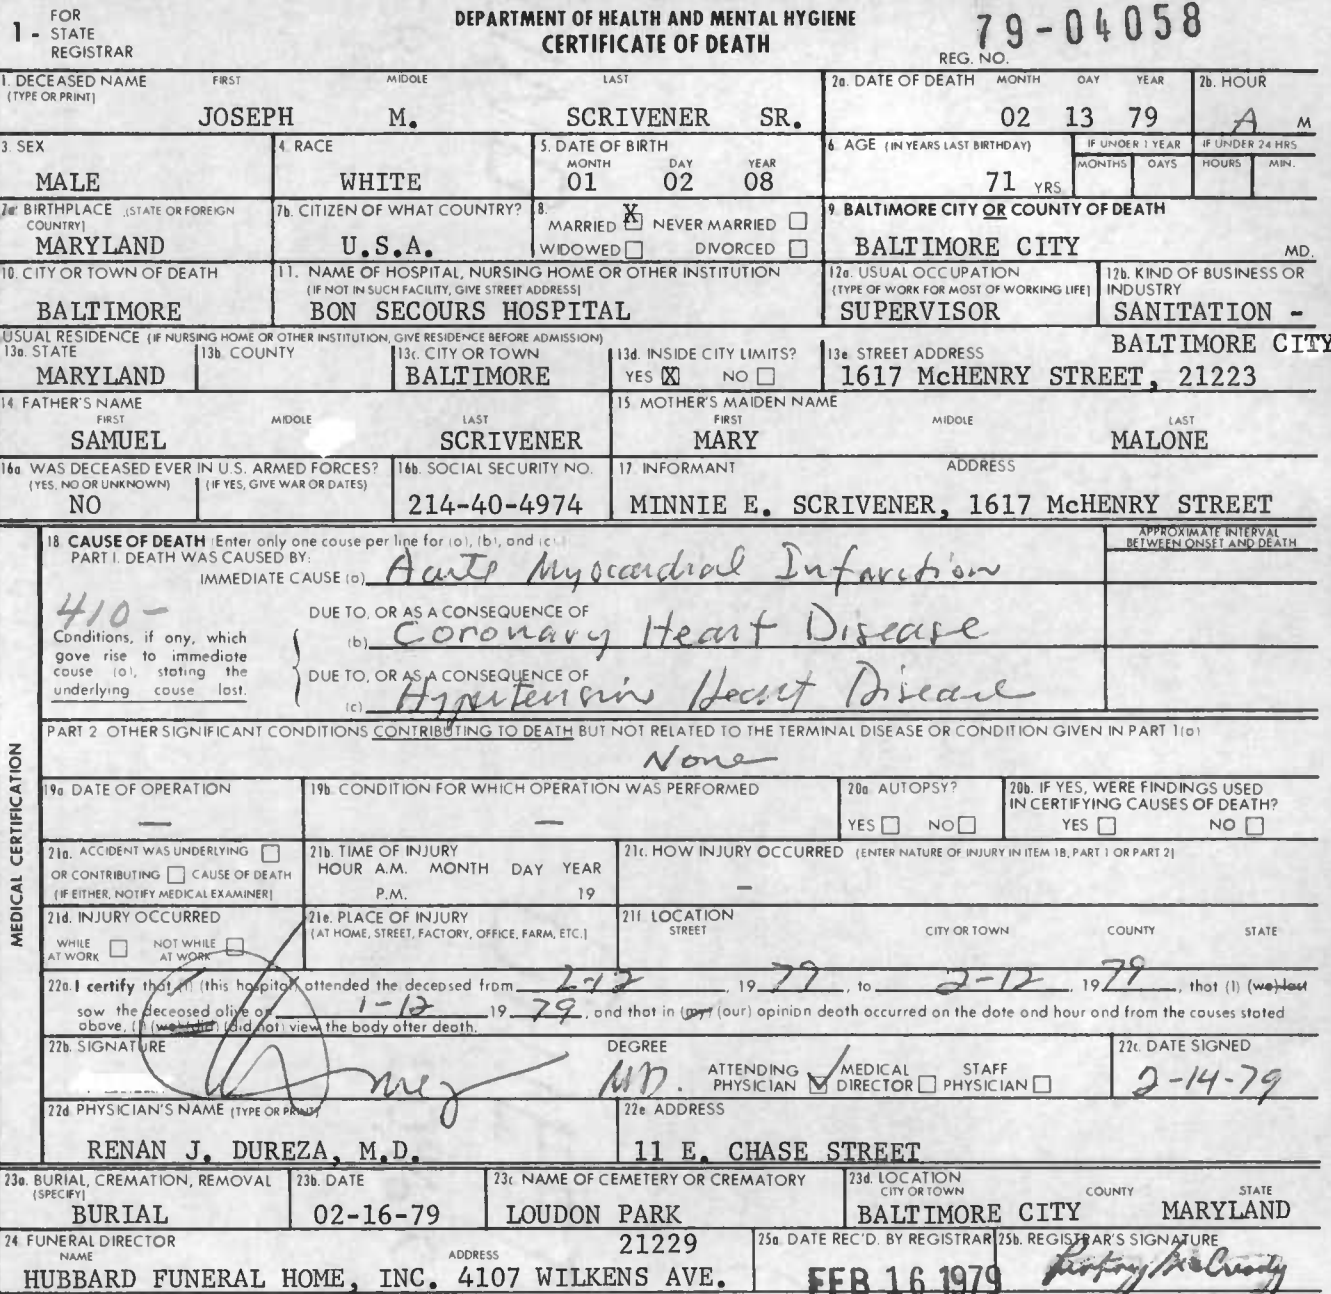 1 - FOR STATE REGISTRAR
DEPARTMENT OF HEALTH AND MENTAL HYGIENE
CERTIFICATE OF DEATH
REG. NO. 79-04058
1. DECEASED NAME (TYPE OR PRINT) FIRST MIDDLE LAST
JOSEPH M. SCRIVENER SR.
2a. DATE OF DEATH MONTH DAY YEAR
02 13 79
2b. HOUR
A M
3. SEX
MALE
4. RACE
WHITE
5. DATE OF BIRTH
MONTH DAY YEAR
01 02 08
6. AGE (IN YEARS LAST BIRTHDAY)
71 YRS
IF UNDER 1 YEAR
MONTHS DAYS
IF UNDER 24 HRS
HOURS MIN.
7a. BIRTHPLACE (STATE OR FOREIGN COUNTRY)
MARYLAND
7b. CITIZEN OF WHAT COUNTRY?
U.S.A.
8.
MARRIED X NEVER MARRIED
WIDOWED DIVORCED
9 BALTIMORE CITY OR COUNTY OF DEATH
BALTIMORE CITY MD.
10. CITY OR TOWN OF DEATH
BALTIMORE
11. NAME OF HOSPITAL, NURSING HOME OR OTHER INSTITUTION
(IF NOT IN SUCH FACILITY, GIVE STREET ADDRESS)
BON SECOURS HOSPITAL
12a. USUAL OCCUPATION
(TYPE OF WORK FOR MOST OF WORKING LIFE)
SUPERVISOR
12b. KIND OF BUSINESS OR INDUSTRY
SANITATION -
BALTIMORE CITY
USUAL RESIDENCE (IF NURSING HOME OR OTHER INSTITUTION, GIVE RESIDENCE BEFORE ADMISSION)
13a. STATE
MARYLAND
13b. COUNTY
13c. CITY OR TOWN
BALTIMORE
13d. INSIDE CITY LIMITS?
YES X NO
13e STREET ADDRESS
1617 McHENRY STREET, 21223
14. FATHER'S NAME
FIRST MIDDLE LAST
SAMUEL SCRIVENER
15. MOTHER'S MAIDEN NAME
FIRST MIDDLE LAST
MARY MALONE
16a WAS DECEASED EVER IN U.S. ARMED FORCES?
(YES, NO OR UNKNOWN) (IF YES, GIVE WAR OR DATES)
NO
16b. SOCIAL SECURITY NO.
214-40-4974
17. INFORMANT ADDRESS
MINNIE E. SCRIVENER, 1617 McHENRY STREET
18. CAUSE OF DEATH (Enter only one cause per line for (a), (b), and (c))
APPROXIMATE INTERVAL BETWEEN ONSET AND DEATH
PART I. DEATH WAS CAUSED BY:
IMMEDIATE CAUSE (a) Acute Myocardial Infarction
410-
Conditions, if any, which gave rise to immediate cause (a), stating the underlying cause last.
DUE TO, OR AS A CONSEQUENCE OF
(b) Coronary Heart Disease
DUE TO, OR AS A CONSEQUENCE OF
(c) Hypertensive Heart Disease
PART 2 OTHER SIGNIFICANT CONDITIONS CONTRIBUTING TO DEATH BUT NOT RELATED TO THE TERMINAL DISEASE OR CONDITION GIVEN IN PART 1(a)
None
MEDICAL CERTIFICATION
19a. DATE OF OPERATION
—
19b. CONDITION FOR WHICH OPERATION WAS PERFORMED
—
20a. AUTOPSY?
YES NO
20b. IF YES, WERE FINDINGS USED IN CERTIFYING CAUSES OF DEATH?
YES NO
21a. ACCIDENT WAS UNDERLYING
OR CONTRIBUTING CAUSE OF DEATH
(IF EITHER, NOTIFY MEDICAL EXAMINER)
21b. TIME OF INJURY
HOUR A.M. MONTH DAY YEAR
P.M. 19
21c. HOW INJURY OCCURRED (ENTER NATURE OF INJURY IN ITEM 18, PART 1 OR PART 2)
—
21d. INJURY OCCURRED
WHILE AT WORK NOT WHILE AT WORK
21e. PLACE OF INJURY
(AT HOME, STREET, FACTORY, OFFICE, FARM, ETC.)
21f. LOCATION
STREET CITY OR TOWN COUNTY STATE
22a. I certify that (I) (this hospital) attended the deceased from 2-12, 1979, to 2-12, 1979, that (I) (we) last
saw the deceased alive on 1-12 1979, and that in (my) (our) opinion death occurred on the date and hour and from the causes stated
above, (I) (we) (did) (did not) view the body after death.
22b. SIGNATURE DEGREE
M.D.
ATTENDING PHYSICIAN MEDICAL DIRECTOR STAFF PHYSICIAN
22c. DATE SIGNED
2-14-79
22d PHYSICIAN'S NAME (TYPE OR PRINT)
RENAN J. DUREZA, M.D.
22e ADDRESS
11 E. CHASE STREET
23a. BURIAL, CREMATION, REMOVAL (SPECIFY)
BURIAL
23b. DATE
02-16-79
23c NAME OF CEMETERY OR CREMATORY
LOUDON PARK
23d. LOCATION
CITY OR TOWN COUNTY STATE
BALTIMORE CITY MARYLAND
24 FUNERAL DIRECTOR
NAME ADDRESS 21229
HUBBARD FUNERAL HOME, INC. 4107 WILKENS AVE.
25a. DATE REC'D. BY REGISTRAR
FEB 16 1979
25b. REGISTRAR'S SIGNATURE